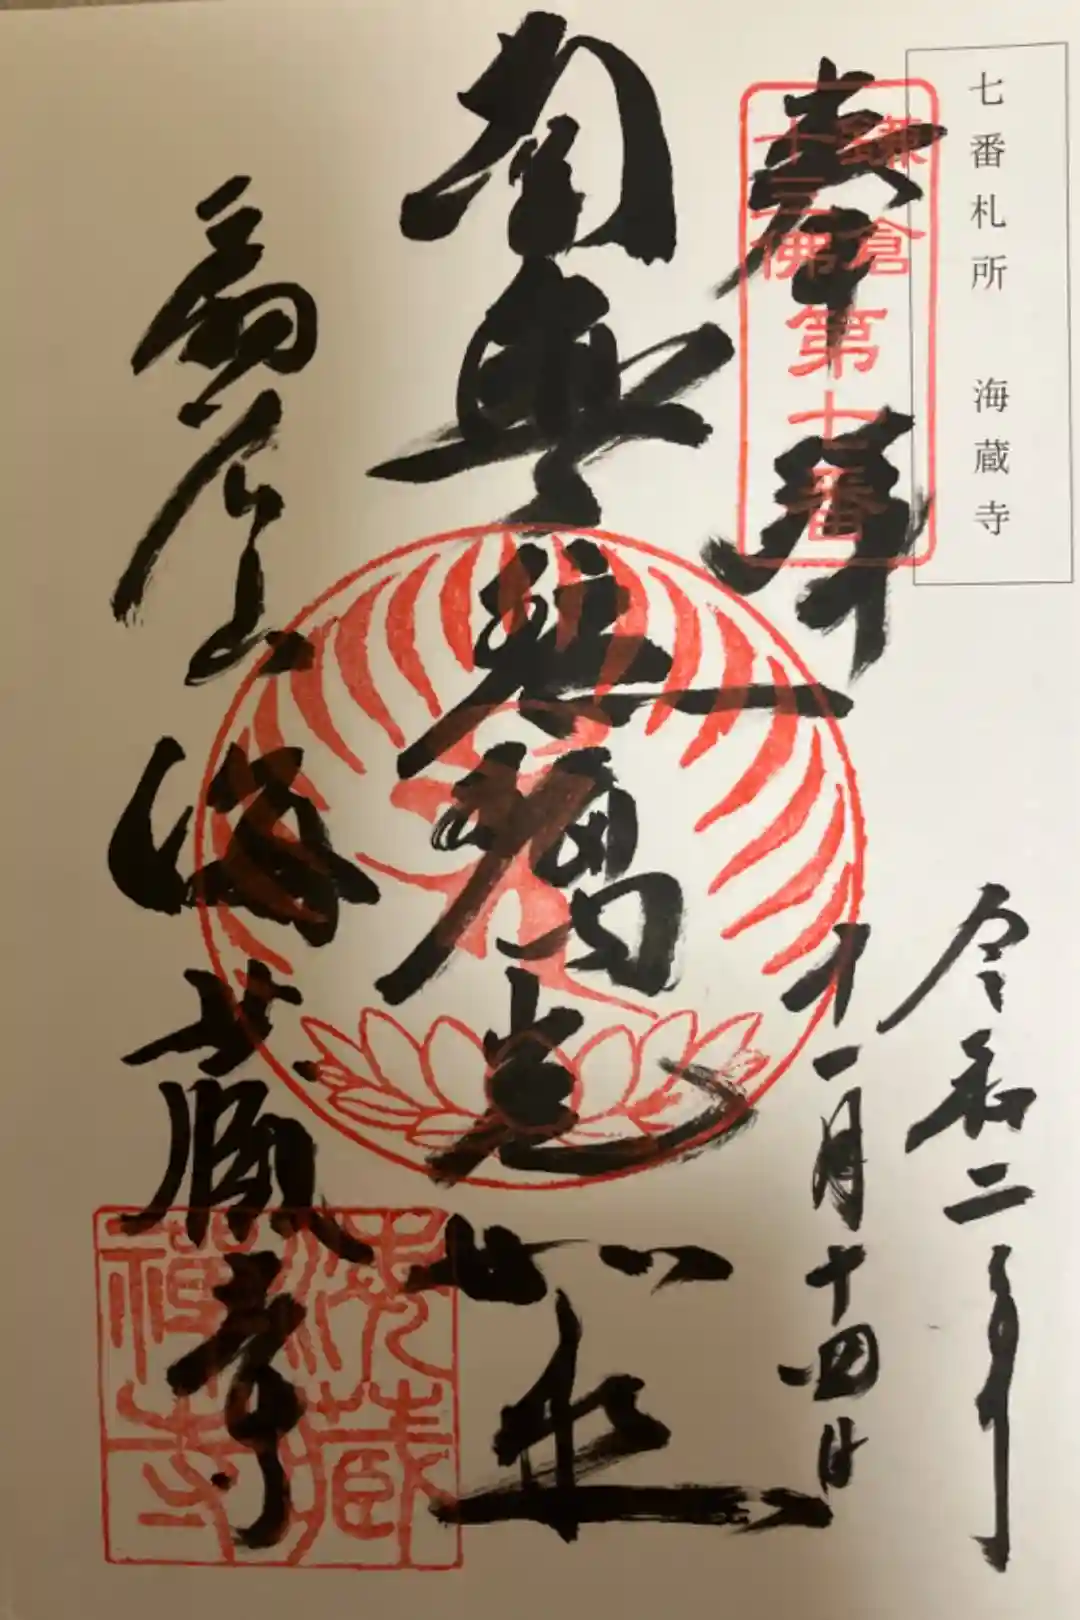 七番札所　海蔵寺
奉拝
鎌倉
十三佛
第七番
令和二年
十一月十四日
南無瑠璃光如来
扇谷山
海蔵寺
海藏
禪寺